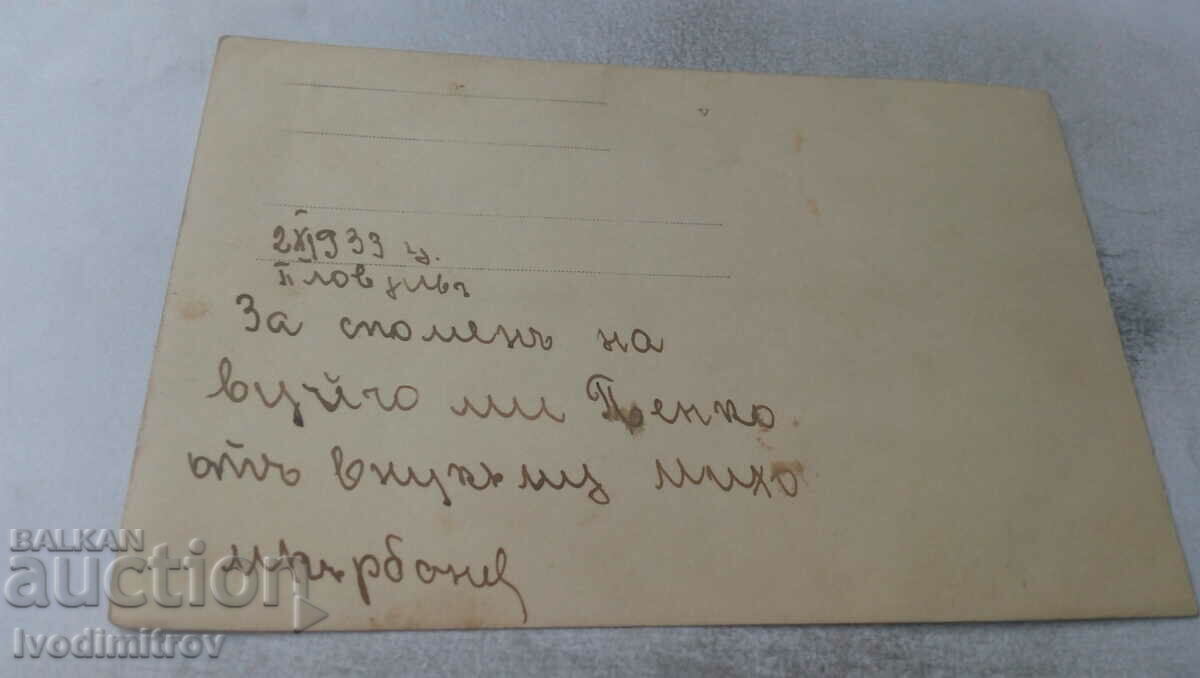 2 XI 1933 г.
Пловдивъ
За споменъ на
вуйчо ми Пенко
отъ внукъ му Михо
BALKAN
auction
Ivodimitrov